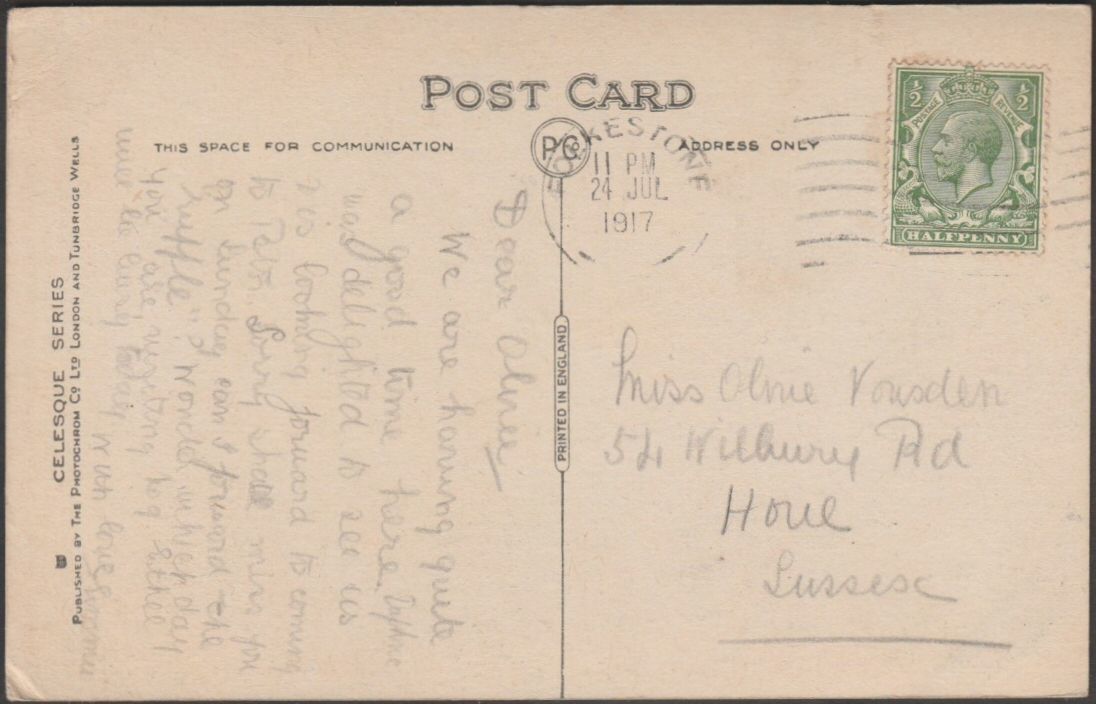 POST CARD
THIS SPACE FOR COMMUNICATION
PC
ADDRESS ONLY
FOLKESTONE
11 PM
24 JUL
1917
½ ½
POSTAGE REVENUE
HALFPENNY
CELESQUE SERIES
PUBLISHED BY THE PHOTOCHROM Co LTD LONDON AND TUNBRIDGE WELLS
PRINTED IN ENGLAND
Dear Olive,
We are having quite
a good time here.
was delighted to see us
is looking forward to coming
to Sorry shall miss you
on Sunday can I forward the
I wonder which day
you are
with love
Miss Olive Vousden
54 Wilbury Rd
Hove
Sussex